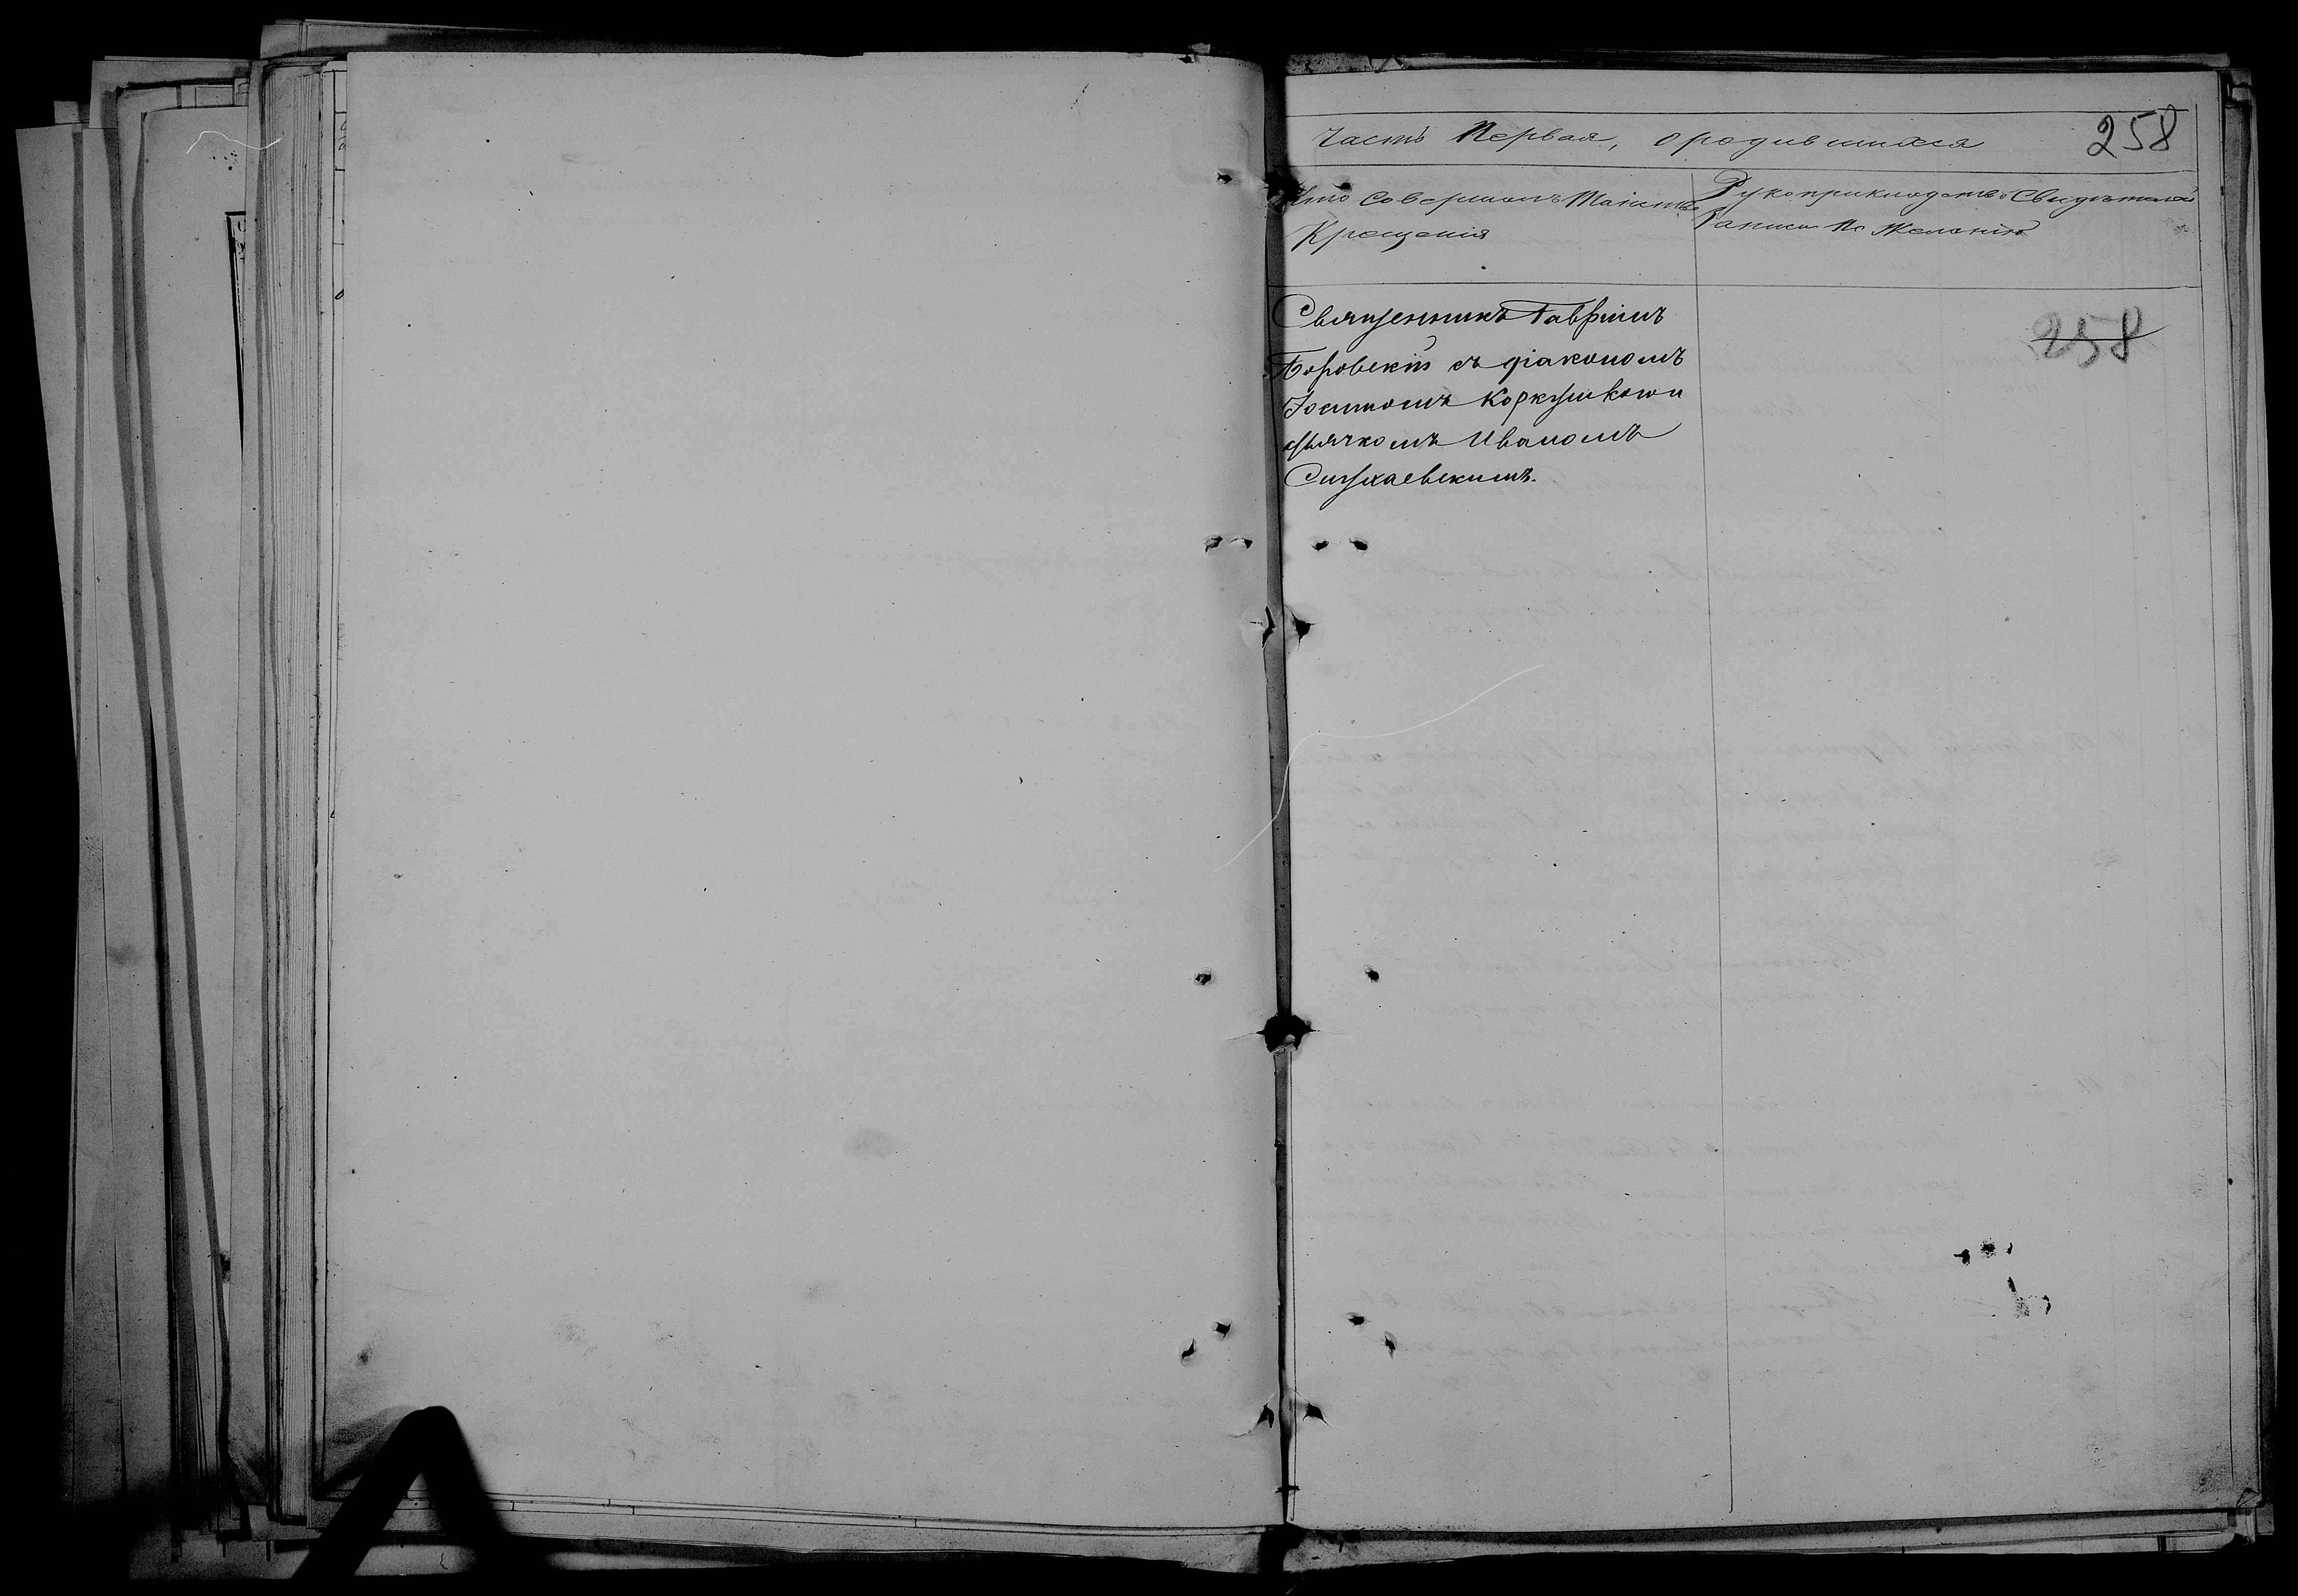 Часть Первая, о родившихся 258
Кто Совершалъ Таинство
Крещенія
Рукоприкладство Свидѣтелей
Записи По Желанію
Священникъ Гавріилъ
Боровскій съ діакономъ
Іоанномъ и
дьячкомъ Иваномъ
258